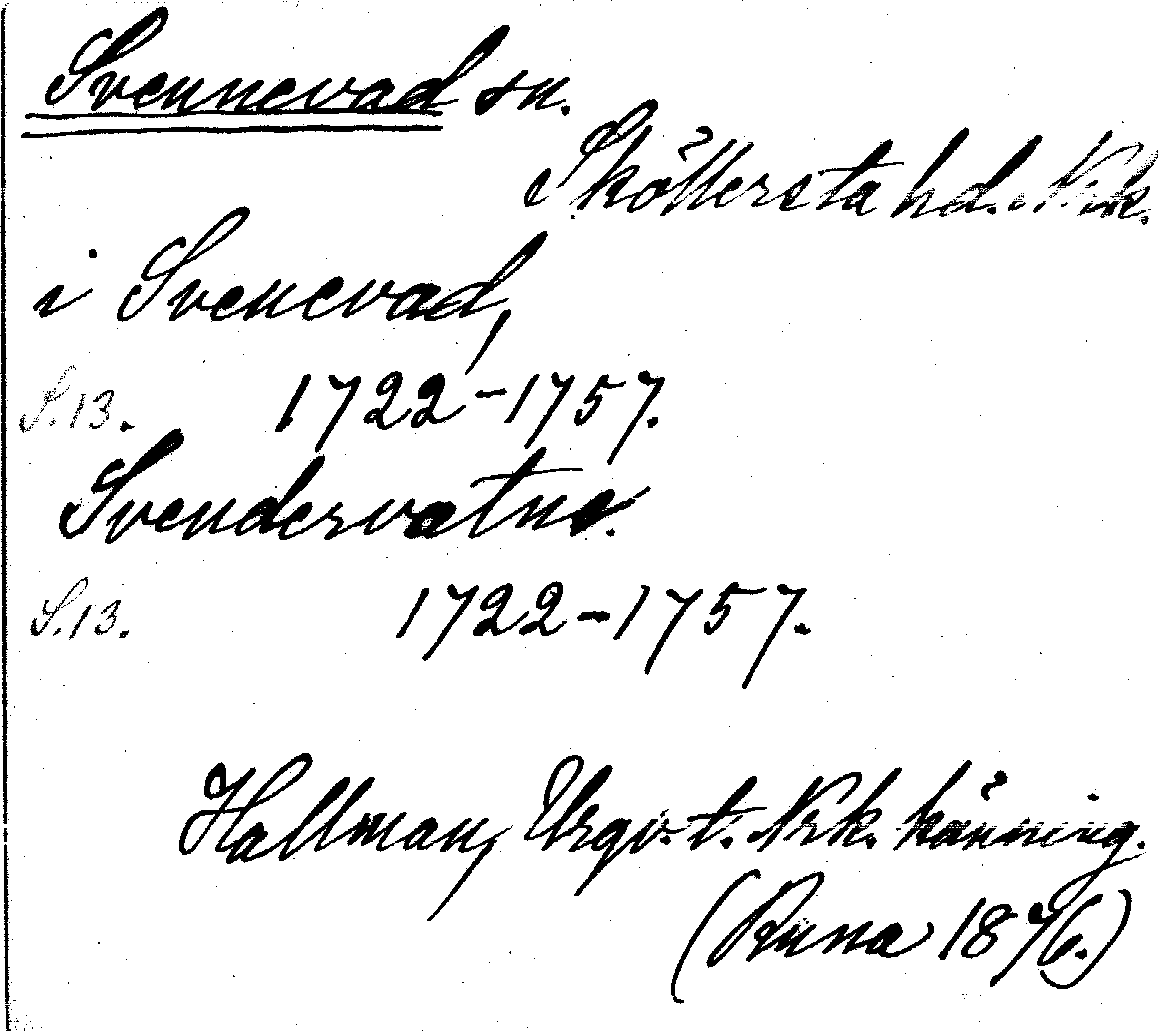 Svennevad sn.
Sköllersta hd. Nrk.
i Svenevad,
S.13. 1722-1757.
Svendervatne.
S.13. 1722-1757.
Hallman, Urgv. t. Nrk. känning.
(Runa 1876.)